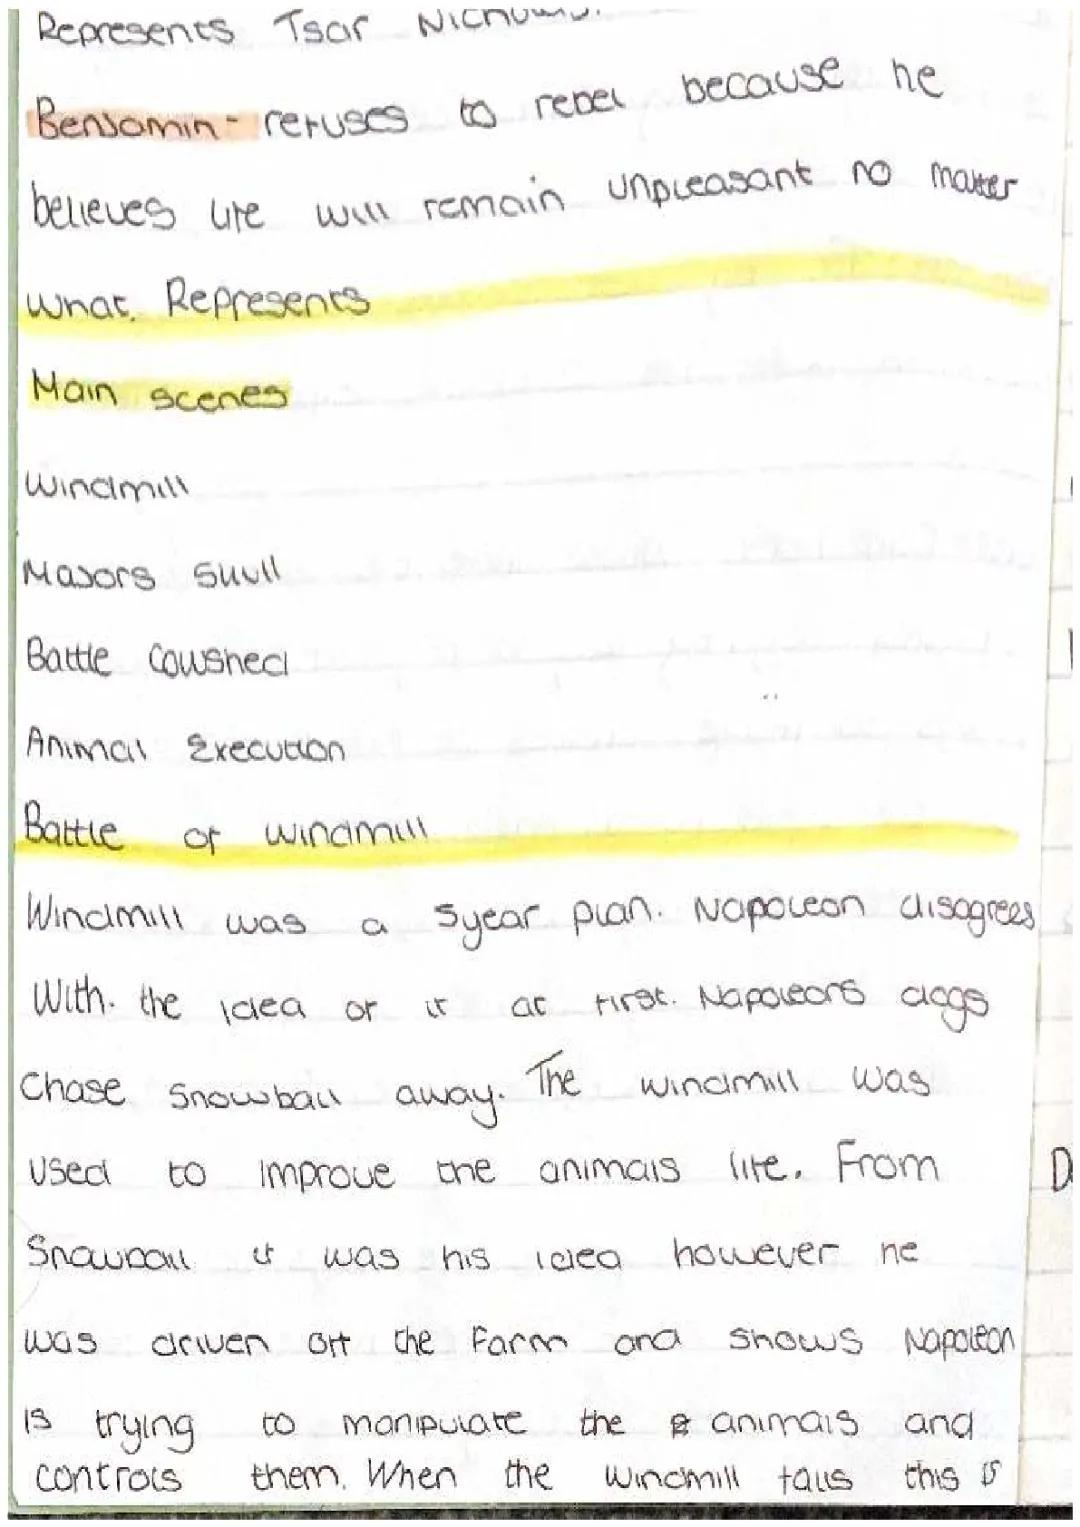 Represents Tsar Nicholas.
Benjamin - refuses to rebel because he
believes life will remain unpleasant no matter
what. Represents
Main scenes
Windmill
Majors skull
Battle Cowshed
Animal Execution
Battle of windmill
Windmill was a 5year plan. Napoleon disagrees
With. the idea of it at first. Napoleons dogs
Chase Snowball away. The windmill was
used to improve the animals life. From
Snowball it was his idea however he
was driven off the Farm and shows Napoleon
is trying to manipulate the animals and
controls them. When the windmill falls this is